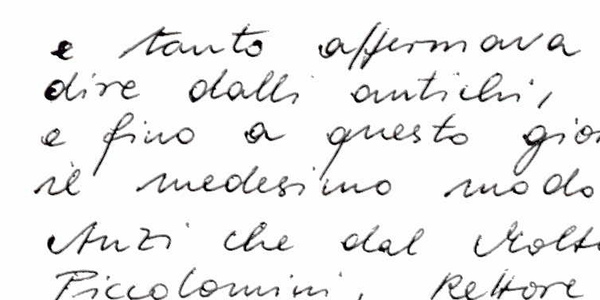 e tanto affermava
dire dalli antichi,
e fino a questo gior
il medesimo modo
Anzi che dal Molto
Piccolomini, Rettore